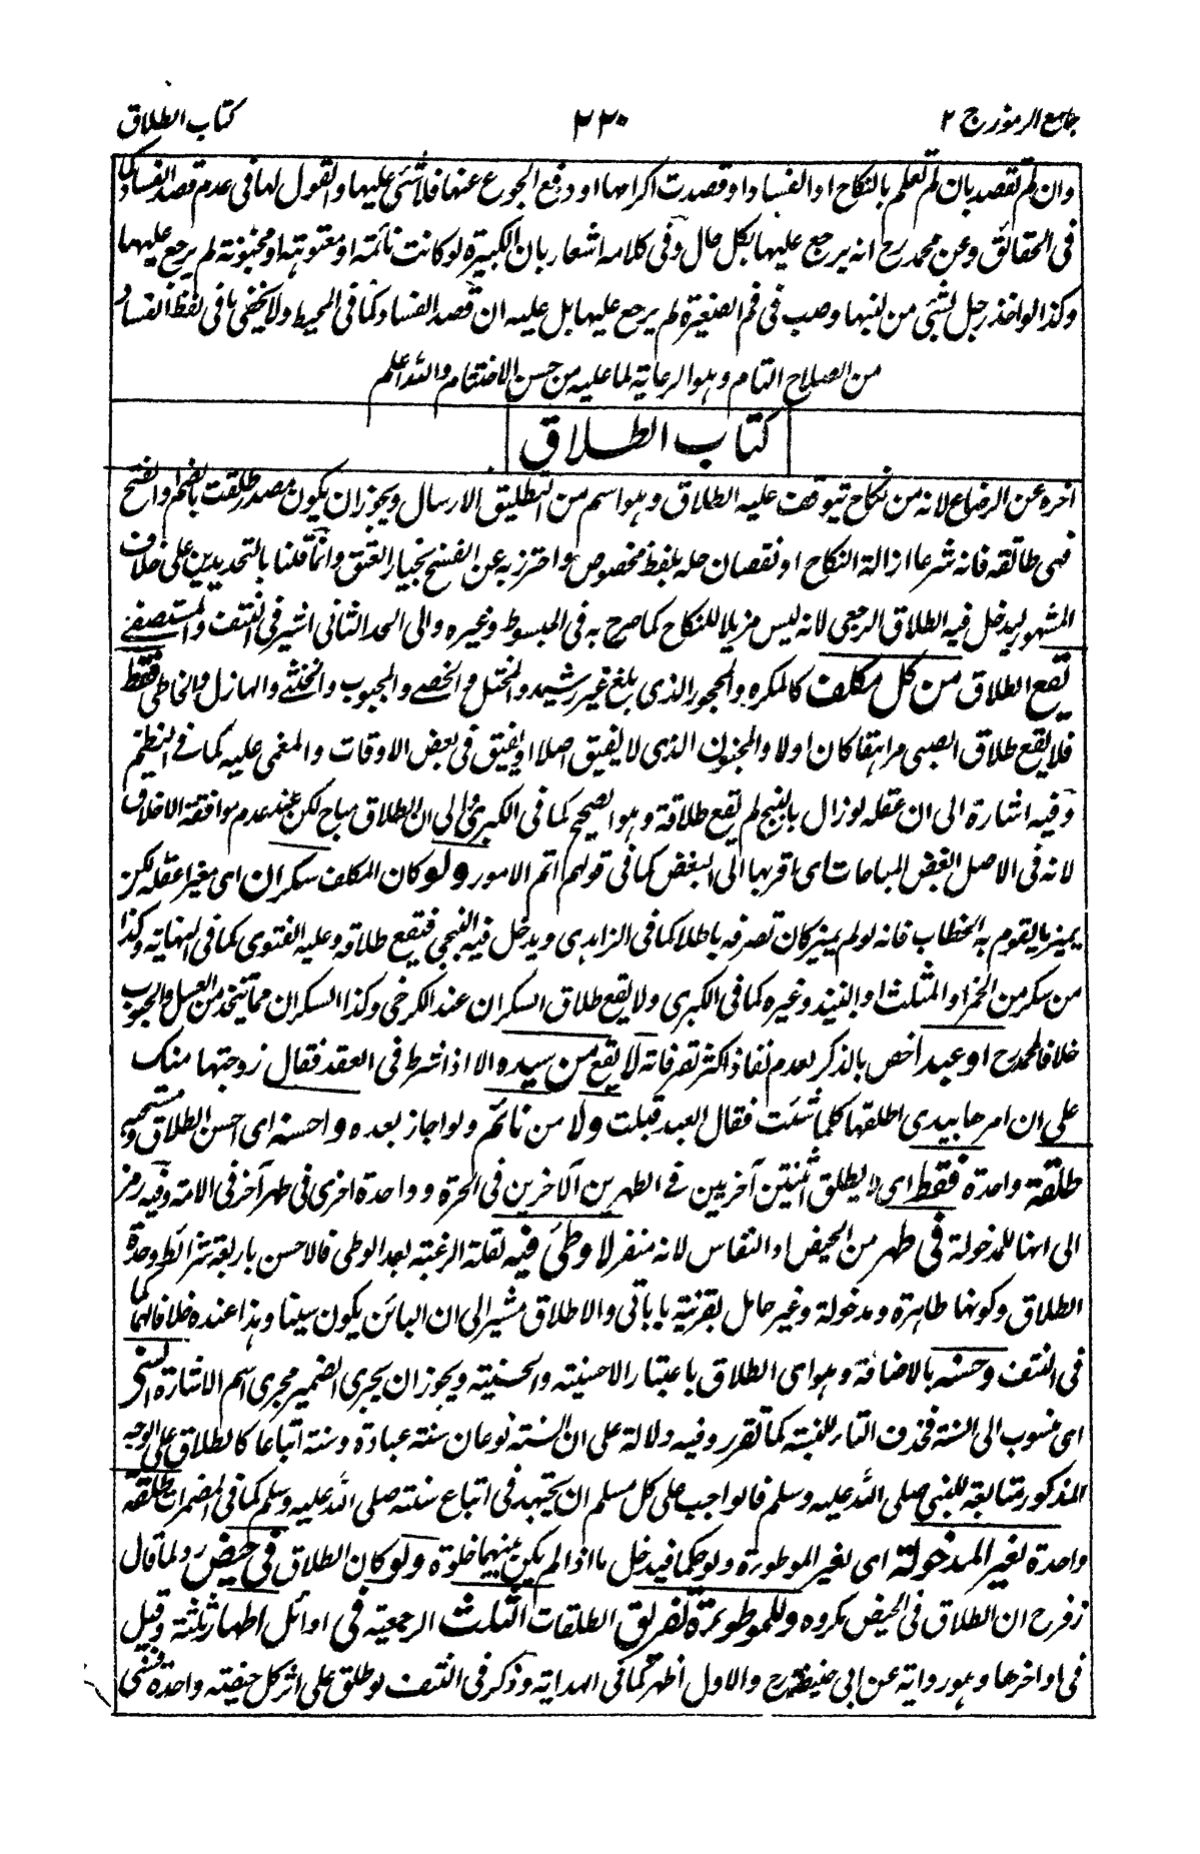 جامع الرموز ج ٢
٢٢٠
كتاب الطلاق
وان لم تقصد بان لم تعلم بالنكاح او الفساد او قصدت اكرامها او دفع الجوع عنها فلا شئ عليها والقول لها فى عدم قصد الفساد كما
فى الحقائق وعن محمد رح انه يرجع عليها بكل حال وفى كلامه اشعار بان الكبيرة لو كانت نائمة او معتوهة او مجنونة لم يرجع عليها
وكذا لو اخذ رجل شئ من لبنها وصب فى فم الصغيرة لم يرجع عليها بل عليه ان قصد الفساد كما فى المحيط ولا يخفى ما فى لفظ الفساد
من الصلاح التام وهو الرعاية لما عليه من حسن الاختتام والله اعلم
كتاب الطلاق
اخره عن الرضاع لانه من نكاح يتوقف عليه الطلاق وهو اسم من التطليق الارسال ويجوز ان يكون مصدر طلقت بالضم او الفتح
فهى طالقة فانه شرعا ازالة النكاح او نقصان حله بلفظ مخصوص واحترز به عن الفسخ بخيار العتق وانما قلنا بالتحديدين على خلاف
المشهور ليدخل فيه الطلاق الرجعى لانه ليس مزيلا للنكاح كما صرح به فى المبسوط وغيره والى الحد الثانى اشير فى النتف والمستصفى
يقع الطلاق من كل مكلف كالمكره والمحجور الذى بلغ غير رشيد والمختل والخصى والمجبوب والخنثى والهازل والخاطى فقط
فلا يقع طلاق الصبى مراهقا كان اولا والمجنون الذى لا يفيق اصلا او يفيق فى بعض الاوقات والمغمى عليه كما فى النظم
وفيه اشارة الى ان عقله لو زال بالبنج لم يقع طلاقة وهو الصحيح كما فى الكبرى والى ان الطلاق مباح لكن عند عدم موافقة الاخلاق
لانه فى الاصل ابغض المباحات اى اقربها الى البغض كما فى قولهم اتم الامور ولو كان المكلف سكران اى مغيرا عقله لكن
يميز ما يقوم به الخطاب فانه لو لم يميز كان تصرفه باطلا كما فى الزاهدى ويدخل فيه البنجى فيقع طلاقه وعليه الفتوى كما فى النهاية وكذا
من سكر من الخمر او المثلث او النبيذ وغيره كما فى الكبرى ولا يقع طلاق السكران عند الكرخى وكذا السكران مما يتخذ من العسل والحبوب
خلافا لمحمد رح او عبد اخص بالذكر لعدم نفاذ اكثر تصرفاته لا يقع من سيده الا اذا شرط فى العقد فقال زوجتها منك
على ان امرها بيدى اطلقها كلما شئت فقال العبد قبلت ولا من نائم ولو اجاز بعده واحسنه اى احسن الطلاق ومستحبه
طلقة واحدة فقط اى لا يطلق اثنتين آخريين فى الطهرين الآخرين فى الحرة وواحدة اخرى فى طهر آخر فى الامة وفيه رمز
الى انها للمدخولة فى طهر من الحيض او النفاس لانه منفر لا وطئ فيه لقلة الرغبة بعد الوطى فالاحسن باربعة شرائط وحدة
الطلاق وكونها طاهرة ومدخولة وغير حامل بقرنية ما ياتى والاطلاق مشير الى ان البائن يكون سينا وهذا عنده خلافا لهما كما
فى النتف وحسنه بالاضافة وهو اى الطلاق باعتبار الاحسنية والحسنية ويجوز ان يجرى الضمير مجرى اسم الاشارة السنى
اى منسوب الى السنة فحذف التاء للنسبة كما تقرر وفيه دلالة على ان السنة نوعان سنة عبادة وسنة اتباعا كالطلاق على الوجه
المذكور متابعة للنبى صلى الله عليه وسلم فالواجب على كل مسلم ان يجتهد فى اتباع سنته صلى الله عليه وسلم كما فى المضمرات طلقة
واحدة لغير المدخولة اى لغير الموطوءة ولو حكما فيدخل ما اذا لم يكن بينهما خلوة ولو كان الطلاق فى حيض ولما قال
زفر رح ان الطلاق فى الحيض مكروه وللموطوءة تفريق الطلقات الثلث الرجعية فى اوائل اطهار ثلثة وقيل
فى اواخرها وهو رواية عن ابى حنيفة رح والاول اظهر كما فى الهداية وذكر فى النتف لو طلق على اثر كل حيضة واحدة فسنى